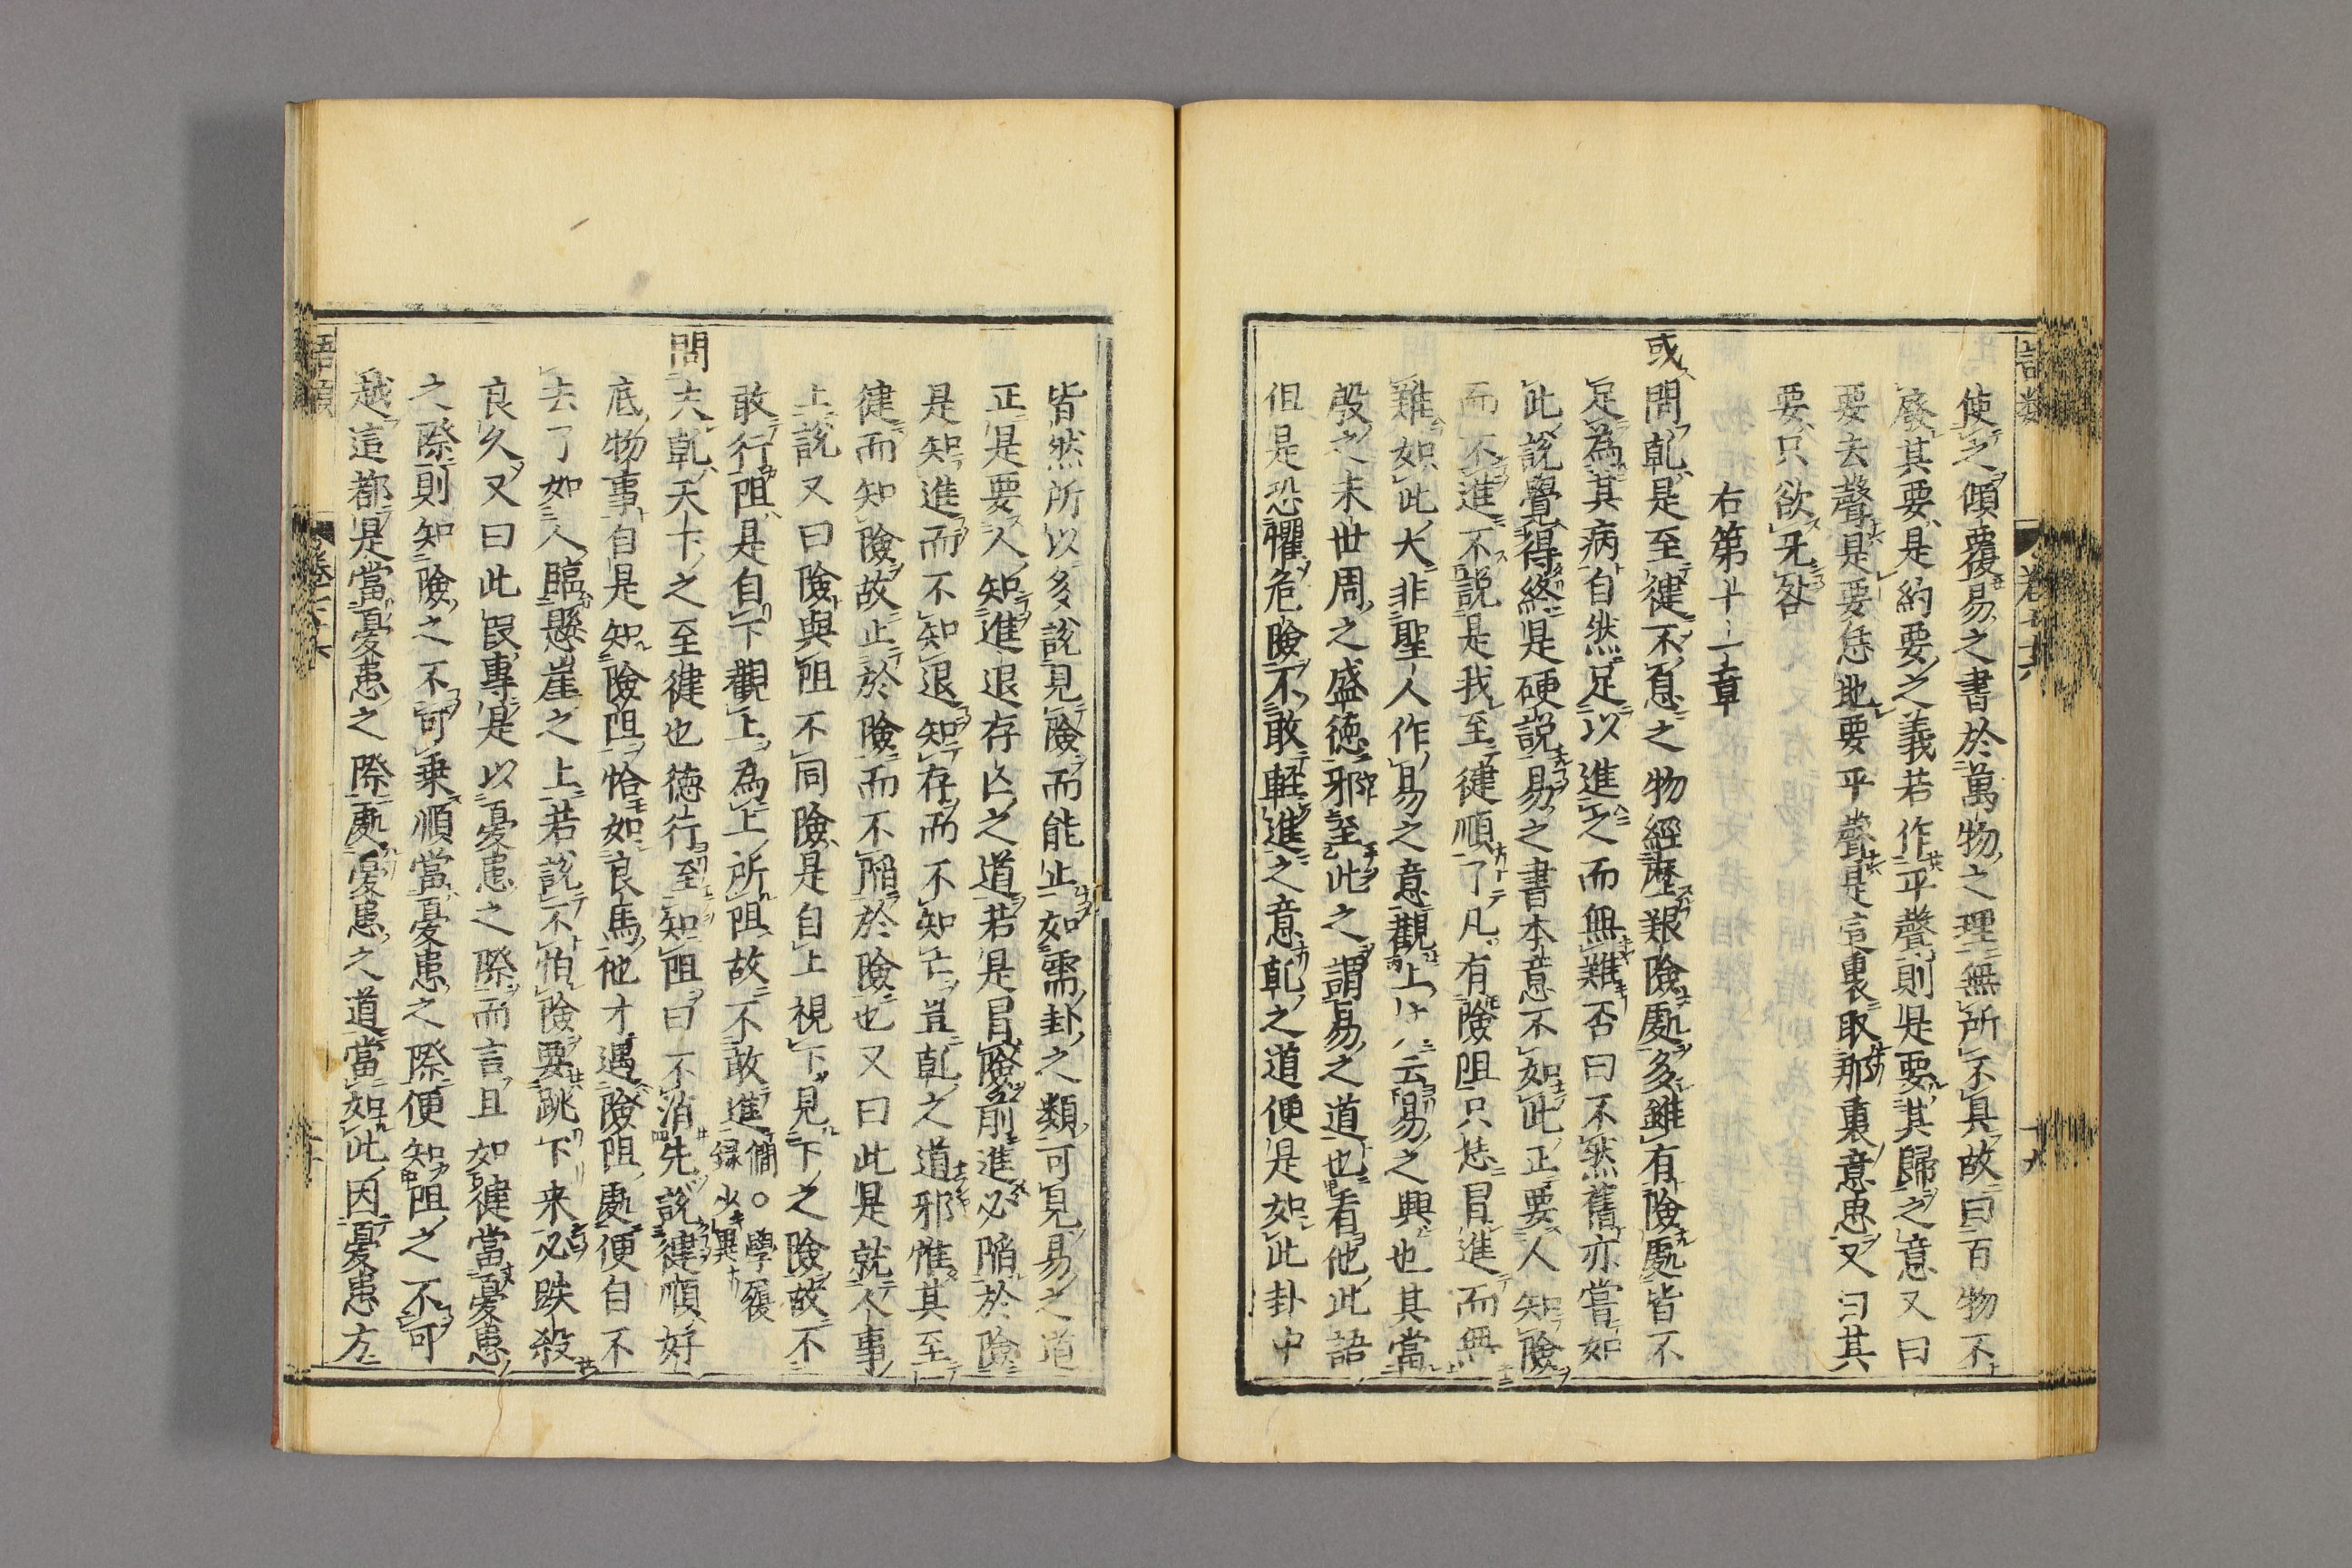 使之傾覆易之書於萬物之理無所不具故曰百物不
廢其要是約要之義若作平聲則是要其歸之意又曰
要去聲是要恁地要平聲是這裏取那裏意思又曰其
要只欲无咎
右第十一章
或問乾是至健不息之物經歷艱險處多雖有險處皆不
足為其病自然足以進之而無難否曰不然舊亦嘗如
此說覺得終是硬説易之書本意不如此正要人知險
而不進不説是我至健順了凡有險阻只恁冒進而無
難如此大非聖人作易之意觀上文云易之興也其當
殷之末世周之盛徳邪至此之謂易之道也看他此語
但是恐懼危險不敢軽進之意乾之道便是如此卦中
皆然所以多說見險而能止如需卦之類可見易之道
正是要人知進退存亡之道若是冒險前進必陥於險
是知進而不知退知存而不知亡豈乾之道邪惟其至
健而知險故止於險而不陥於險也又曰此是就人事
上說又曰險與阻不同險是自上視下見下之險故不
敢行阻是自下觀上為上所阻故不敢進僩錄○學履少異
問夫乾天下之至健也徳行至知阻曰不消先說健順好
底物事自是知險阻恰如良馬他才遇險阻處便自不
去了如人臨懸崖之上若說不怕險要跳下来必跌殺
良久又曰此段專是以憂患之際而言且如健當憂患
之際則知險之不可乗順當憂患之際便知阻之不可
越這都是當憂患之際處憂患之道當如此因憂患方